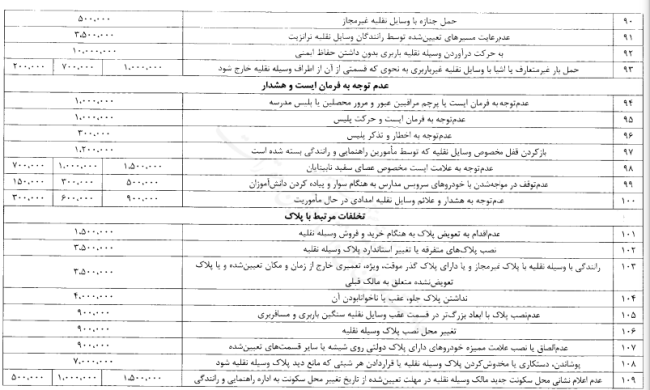 ۹۰ حمل جنازه با وسایل نقلیه غیرمجاز ۵۰۰،۰۰۰
۹۱ عدم‌رعایت مسیرهای تعیین‌شده توسط رانندگان وسایل نقلیه ترانزیت ۳،۵۰۰،۰۰۰
۹۲ به حرکت درآوردن وسیله نقلیه باربری بدون داشتن حفاظ ایمنی ۱۰،۰۰۰،۰۰۰
۹۳ حمل بار غیرمتعارف یا اشیا با وسایل نقلیه غیرباربری به نحوی که قسمتی از آن از اطراف وسیله نقلیه خارج شود ۱،۰۰۰،۰۰۰ ۷۰۰،۰۰۰ ۲۰۰،۰۰۰
عدم توجه به فرمان ایست و هشدار
۹۴ عدم‌توجه به فرمان ایست یا پرچم مراقبین عبور و مرور محصلین یا پلیس مدرسه ۱،۰۰۰،۰۰۰
۹۵ عدم‌توجه به فرمان ایست و حرکت پلیس ۱،۰۰۰،۰۰۰
۹۶ عدم‌توجه به اخطار و تذکر پلیس ۳۰۰،۰۰۰
۹۷ بازکردن قفل مخصوص وسایل نقلیه که توسط مأمورین راهنمایی و رانندگی بسته شده است ۱،۲۰۰،۰۰۰
۹۸ عدم‌توجه به علامت ایست مخصوص عصای سفید نابینایان ۱،۵۰۰،۰۰۰ ۱،۰۰۰،۰۰۰ ۷۰۰،۰۰۰
۹۹ عدم‌توقف در مواجه‌شدن با خودروهای سرویس مدارس به هنگام سوار و پیاده کردن دانش‌آموزان ۵۰۰،۰۰۰ ۳۰۰،۰۰۰ ۱۵۰،۰۰۰
۱۰۰ عدم‌توجه به هشدار و علائم وسایل نقلیه امدادی در حال مأموریت ۹۰۰،۰۰۰ ۶۰۰،۰۰۰ ۳۰۰،۰۰۰
تخلفات مرتبط با پلاک
۱۰۱ عدم‌اقدام به تعویض پلاک به هنگام خرید و فروش وسیله نقلیه ۱،۵۰۰،۰۰۰
۱۰۲ نصب پلاک‌های متفرقه یا تغییر استاندارد پلاک وسیله نقلیه ۳،۵۰۰،۰۰۰
۱۰۳ رانندگی با وسیله نقلیه با پلاک غیرمجاز و یا دارای پلاک گذر موقت، ویژه، تعمیری خارج از زمان و مکان تعیین‌شده و یا پلاک ۳،۵۰۰،۰۰۰
تعویض‌نشده متعلق به مالک قبلی
۱۰۴ نداشتن پلاک جلو، عقب یا ناخوانابودن آن ۴،۰۰۰،۰۰۰
۱۰۵ عدم‌نصب پلاک با ابعاد بزرگ‌تر در قسمت عقب وسایل نقلیه سنگین باربری و مسافربری ۹۰۰،۰۰۰
۱۰۶ تغییر محل نصب پلاک وسیله نقلیه ۹۰۰،۰۰۰
۱۰۷ عدم‌الصاق یا نصب علامت ممیزه خودروهای دارای پلاک دولتی روی شیشه یا سایر قسمت‌های تعیین‌شده ۹۰۰،۰۰۰
۱۰۸ پوشاندن، دستکاری یا مخدوش‌کردن پلاک وسیله نقلیه یا قراردادن هر شیئی که مانع دید پلاک وسیله نقلیه شود ۷،۰۰۰،۰۰۰
۱۰۹ عدم اعلام نشانی محل سکونت جدید مالک وسیله نقلیه در مهلت تعیین‌شده از تاریخ تغییر محل سکونت به اداره راهنمایی و رانندگی ۱،۵۰۰،۰۰۰ ۱،۰۰۰،۰۰۰ ۵۰۰،۰۰۰